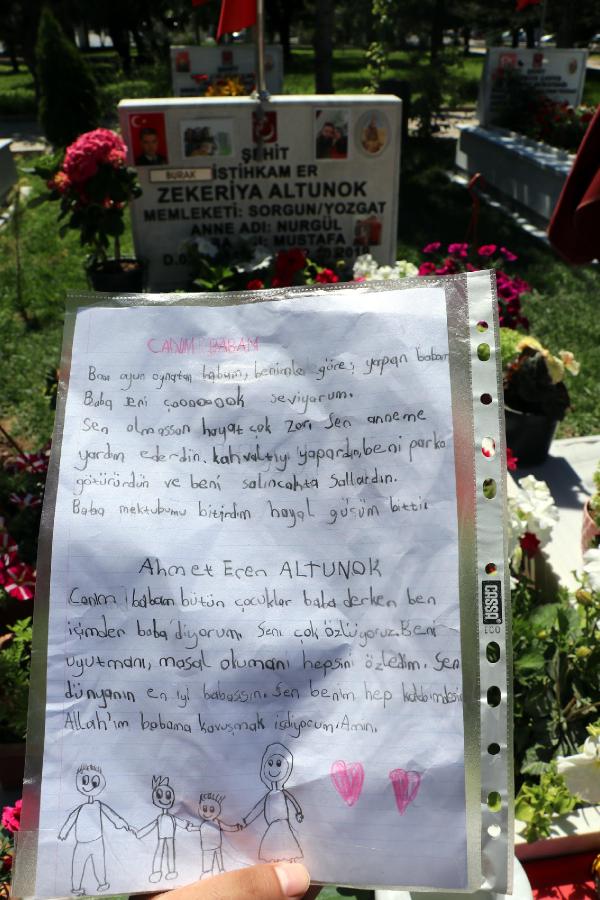 ŞEHİT
İSTİHKAM ER
BURAK
ZEKERİYA ALTUNOK
MEMLEKETİ: SORGUN/YOZGAT
ANNE ADI: NURGÜL
MUSTAFA
CANIM BABAM
Bana oyun oynatan babam, benimle güreş yapan babam
Baba seni çooooook seviyorum.
Sen olmassan hayat çok zor. Sen anneme
yardım ederdin. kahvaltıyı yapardın, beni parka
götürürdün ve beni salıncakta sallardın.
Baba mektubumu bitirdim hayal gücüm bitti.
Ahmet Eren ALTUNOK
Canım babam bütün çocuklar baba derken ben
içimden baba diyorum. Seni çok özlüyoruz. Beni
uyutmanı, masal okumanı hepsini özledim. Sen
dünyanın en iyi babassın. Sen benim hep kalbimdesin
Allah'ım babama kavuşmak istiyorum. Amin.
CASSA
ECO